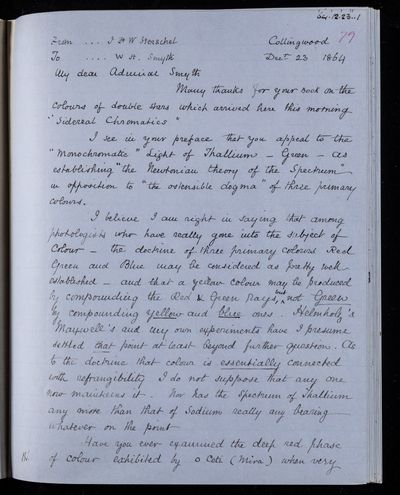 64.12.23../
From .... J F W Herschel Collingwood 79
To .... W H. Smyth Dec.r 23 1864
My dear Admiral Smyth
Many thanks for your book on the
colours of double stars which arrived here this morning
"Sidereal Chromatics"
I see in your preface that you appeal to the
"Monochromatic" Light of Thallium – Green – as
establishing "the Newtonian theory of the Spectrum"
in opposition to "the ostensible dogma" of three primary
colours.
I believe I am right in saying that among
photologists who have really gone into the subject of
Colour – the doctrine of three primary colours Red
Green and Blue may be considered as pretty well
established – and that a yellow colour may be produced
by compounding the Red & Green rays, but not Green
by compounding yellow and blue ones. Helmholz's
Maxwell's and my own experiments have I presume
settled that point at least beyond further question. As
to the doctrine that colour is essentially connected
with refrangibility I do not suppose that any one
now maintains it. Nor has the spectrum of Thallium
any more than that of Sodium really any bearing
whatever on the point
Have you ever examined the deep red phase
of colour exhibited by o Ceti (Mira) when very